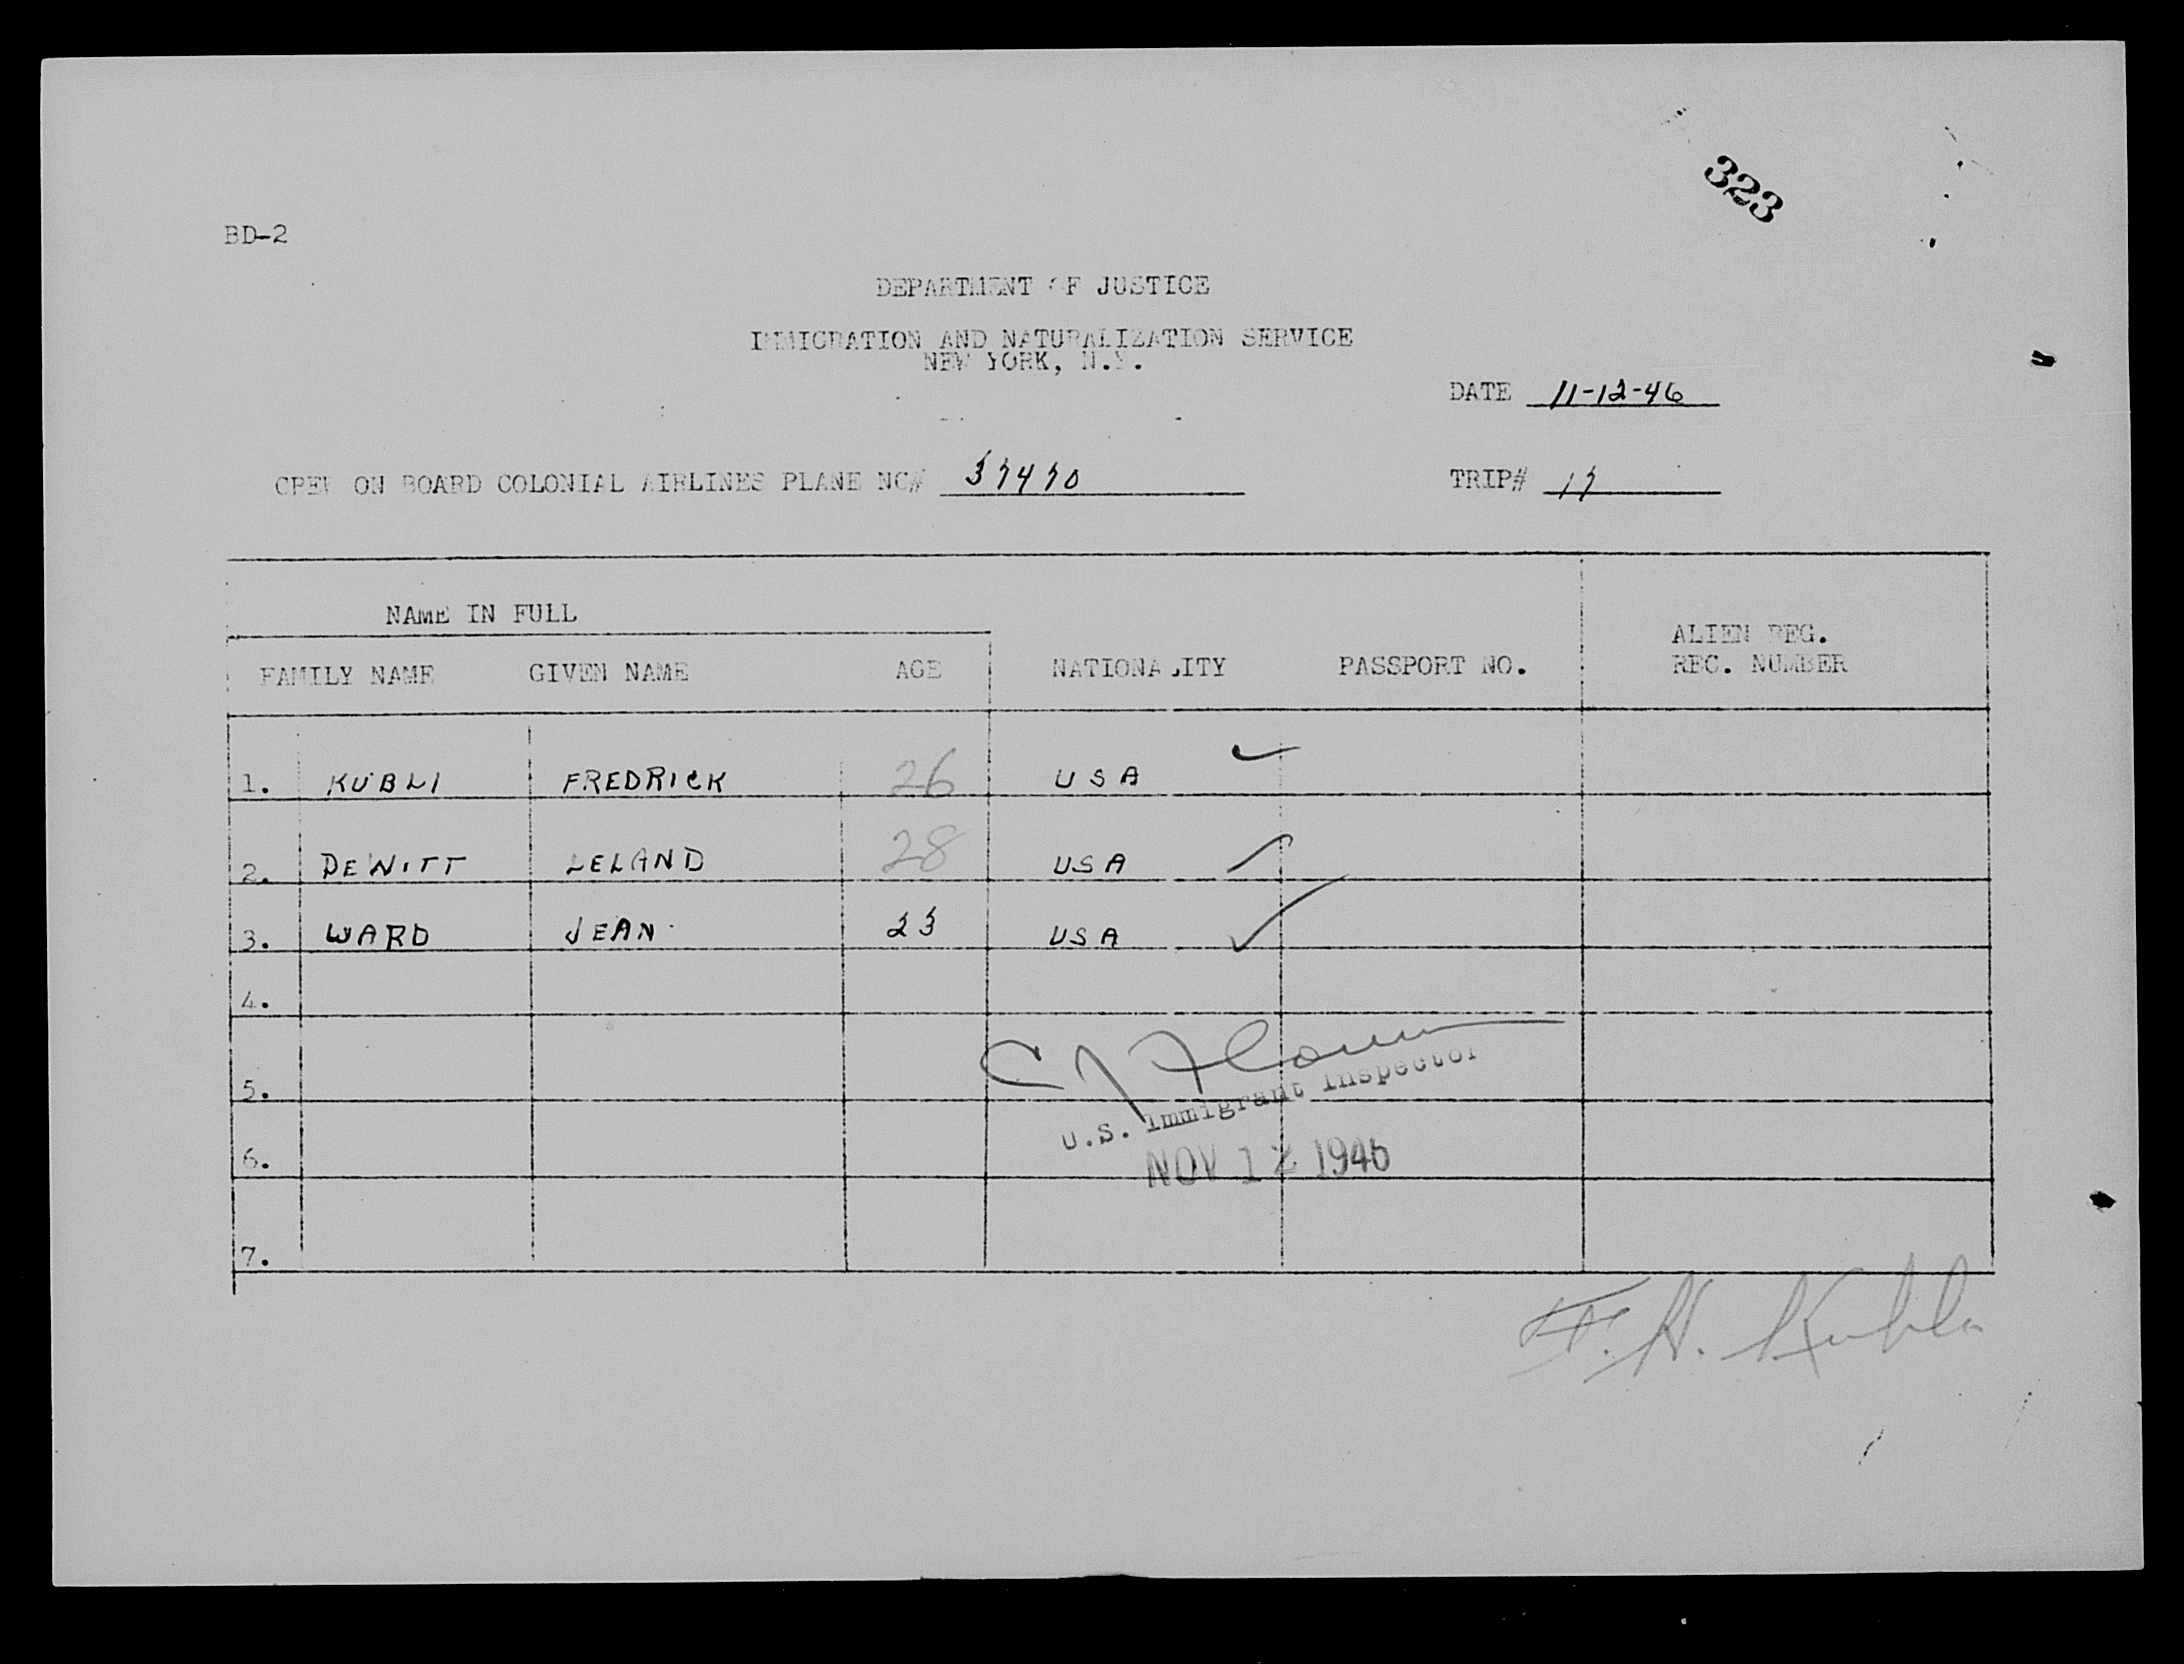 323
BD-2
DEPARTMENT OF JUSTICE
IMMIGRATION AND NATURALIZATION SERVICE
NEW YORK, N.Y.
DATE 11-12-46
CREW ON BOARD COLONIAL AIRLINES PLANE NC# 37470
TRIP# 17
NAME IN FULL
FAMILY NAME GIVEN NAME AGE NATIONALITY PASSPORT NO. ALIEN REG. REC. NUMBER
1. KUBLI FREDRICK 26 USA
2. DEWITT LELAND 28 USA
3. WARD JEAN 23 USA
4.
5.
U.S. Immigrant Inspector
6.
NOV 12 1946
7.
F. H. Kubli